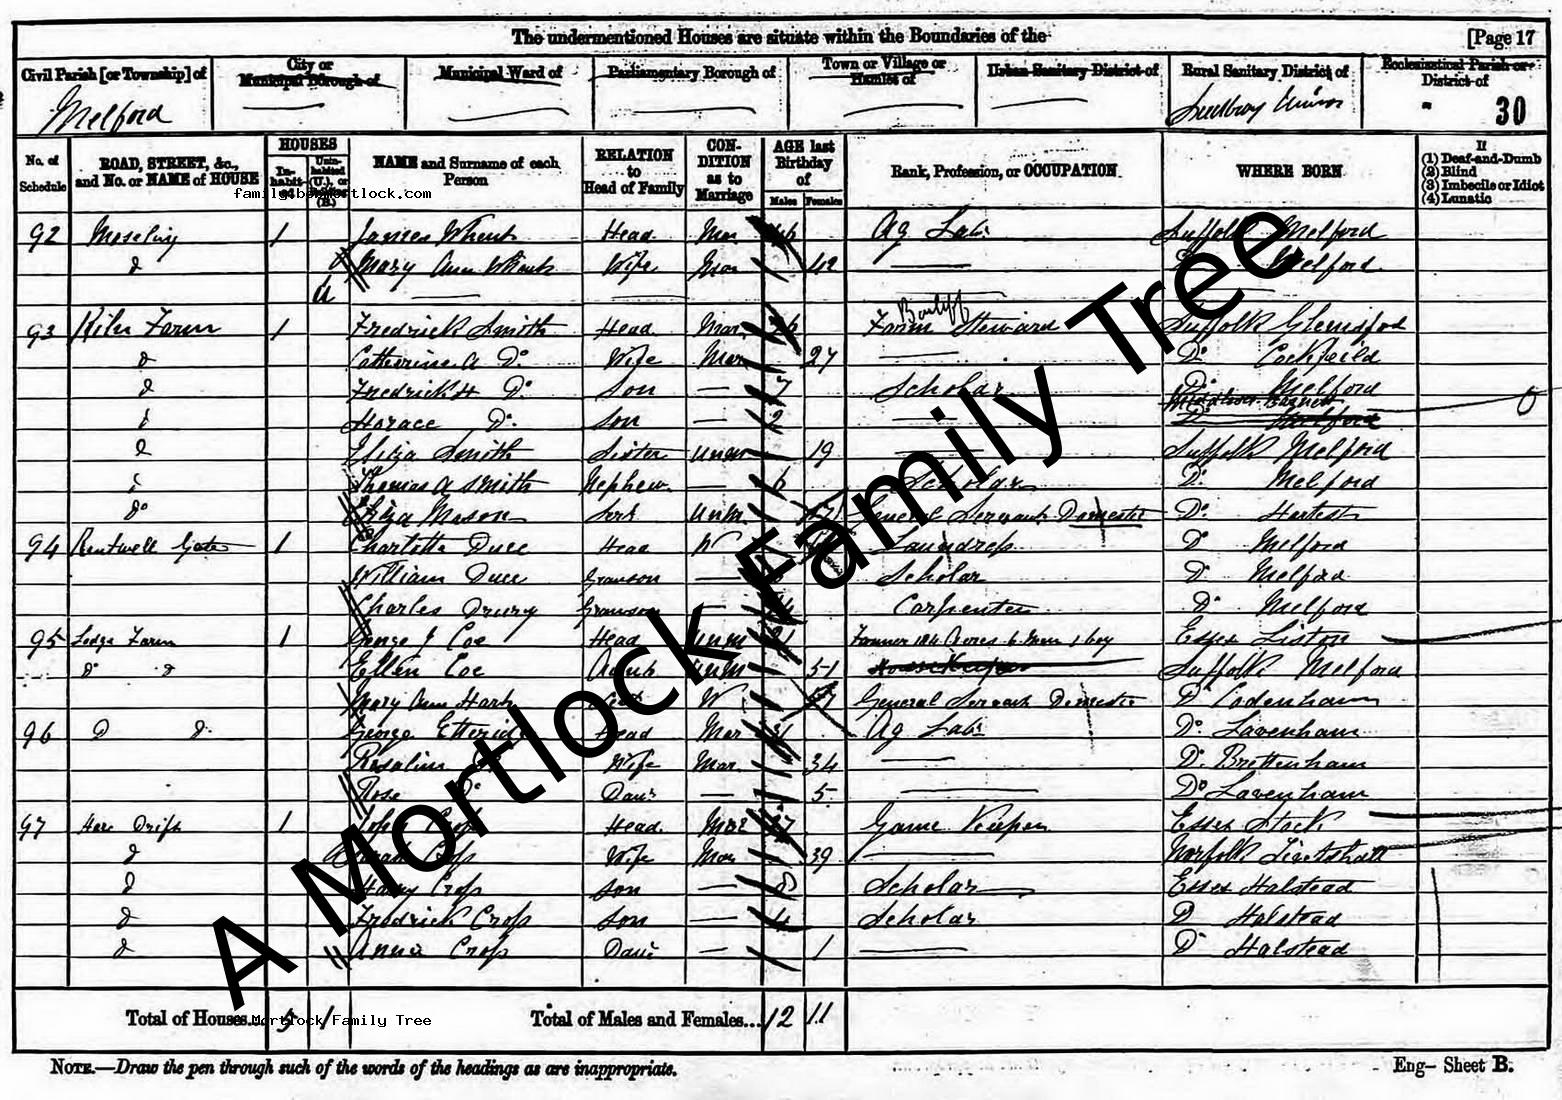 The undermentioned Houses are situate within the Boundaries of the [Page 17
Civil Parish [or Township] of City or Municipal Borough of Municipal Ward of Parliamentary Borough of Town or Village or Hamlet of Urban Sanitary District of Rural Sanitary District of Ecclesiastical Parish or District of
Melford Sudbury Union 30
No. of Schedule ROAD, STREET, &c., and No. or NAME of HOUSE HOUSES Inhabited Uninhabited (U.), or Building (B.) NAME and Surname of each Person RELATION to Head of Family CONDITION as to Marriage AGE last Birthday of Males Females Rank, Profession, or OCCUPATION WHERE BORN If (1) Deaf-and-Dumb (2) Blind (3) Imbecile or Idiot (4) Lunatic
92 1 James Head Mar 46 Ag Lab. Suffolk Melford
d Mary Ann Wife Mar 42 Do Melford
U
93 Kiln Farm 1 Fredrick Smith Head Mar Farm Steward Bailiff Suffolk Glemsford
d Catherine A Do. Wife Mar 27 Do Cockfeild
d Fredrick H Do Son 7 Scholar Do Melford
Horace Do. Son 2 Do Melford
d Eliza Smith Sister Unm 19 Suffolk Melford
Thomas A Smith Nephew 6 Scholar Do. Melford
Do Eliza Mason Serv Unm. 17 General Servant Domestic Do. Hartest
94 Kentwell Gate 1 Charlotte Duce Head W Laundress Do Melford
William Duce Granson Scholar Do Melford
Charles Drury Granson Carpenter Do Melford
95 Lodge Farm 1 George J Coe Head Unm 21 Farmer 184 Acres 6 Men 1 boy Essex Liston
Do d Ellen Coe Aunt Unm 51 Housekeeper Suffolk Melford
Mary Ann W General Servant Domestic Do Codenham
96 D D. George Head Mar Ag Lab. Do. Lavenham
Wife Mar. 34 Do. Brettenham
Rose Do Daur 5 Do Lavenham
97 Hare Drift 1 John Crop Head. Mar 37 Game Keeper Essex Stock
d Sarah Crop Wife Mar 39 Norfolk
d Harry Crop Son 8 Scholar Essex Halstead
d Fredrick Crop Son 4 Scholar D Halstead
d Anna Crop Daur 1 Do Halstead
Total of Houses... 5 1 Total of Males and Females... 12 11
NOTE.—Draw the pen through such of the words of the headings as are inappropriate. Eng— Sheet B.
A Mortlock Family Tree
Mortlock Family Tree